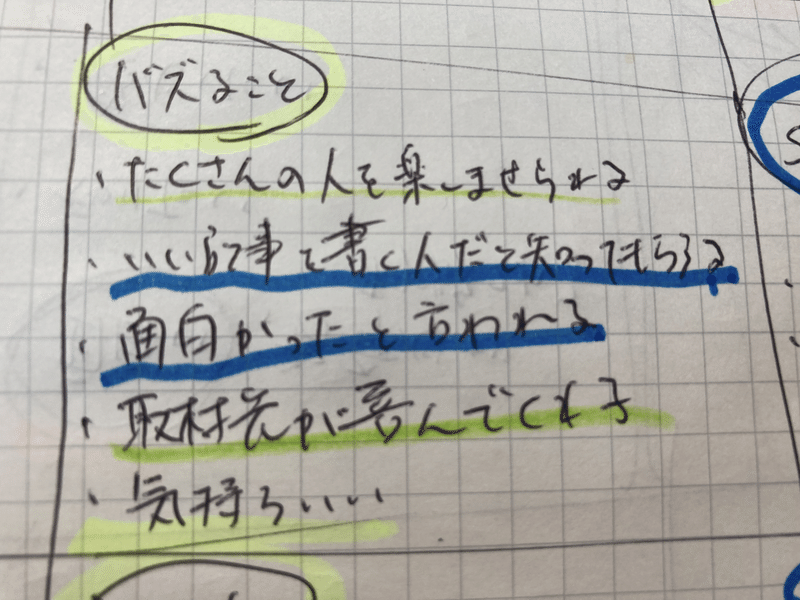 バズること
・たくさんの人を楽しませられる
・いい記事を書く人だと知ってもらえる
・面白かったと言われる
・取材先が喜んでくれる
・気持ちいい